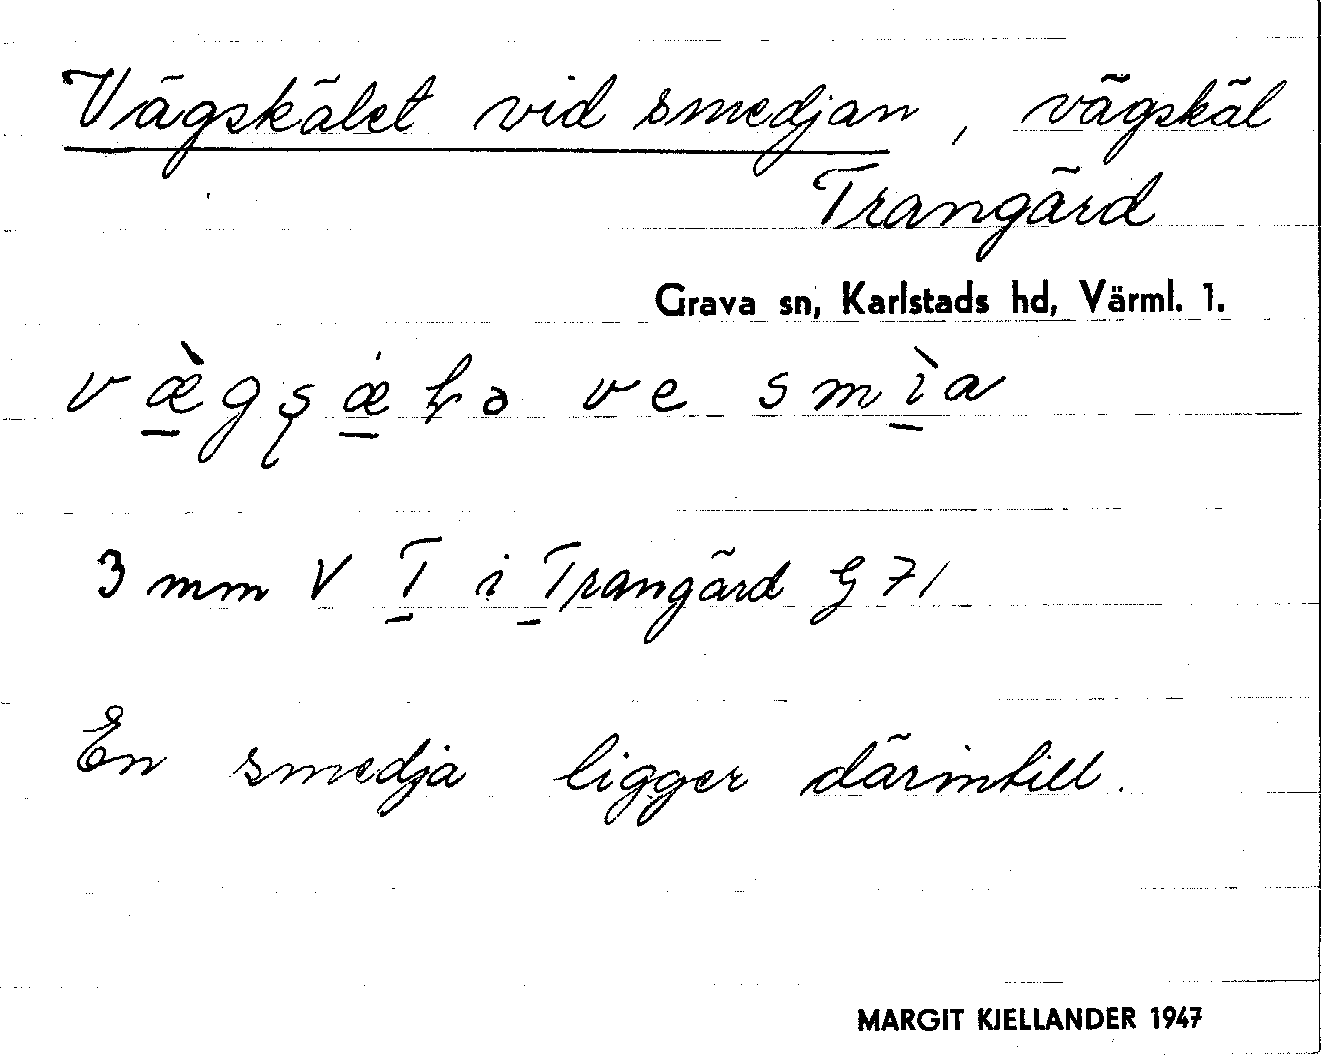 Vägskälet vid smedjan, vägskäl
Trangärd
Grava sn, Karlstads hd, Värml. 1.
ve smìa
3 mm V T i Trangärd G 71
En smedja ligger därintill.
MARGIT KJELLANDER 1947